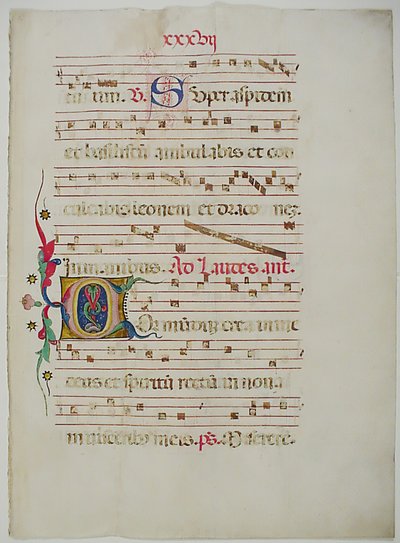 xxxvij
tu um. V. Super aspidem
et basiliscū ambulabis et con
culcabis leonem et draconez.
Ad Laudes. ant.
Cor mūdū crea in me
deus et spiritū rectū in nova
in visceribz meis. ps. Miserere.